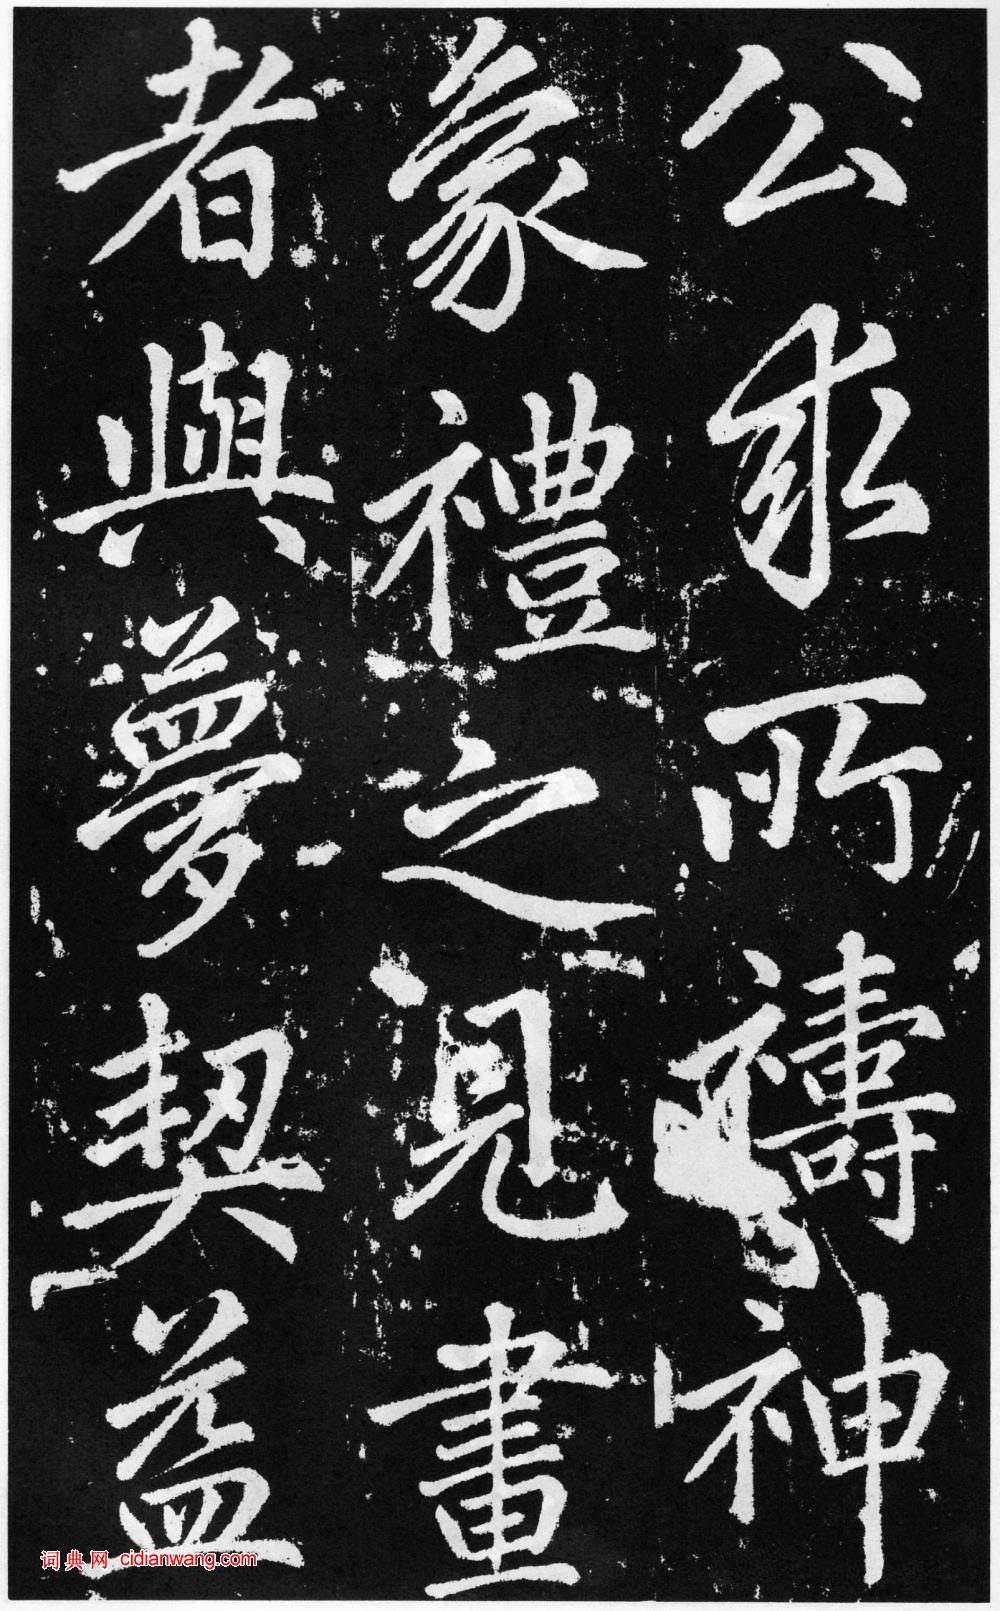 公求所禱神
象禮之見畫
者與夢契益
词典网 cidianwang.com